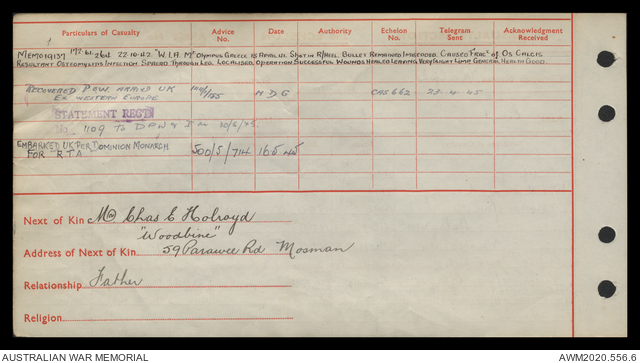 Particulars of Casualty Advice No. Date Authority Echelon No. Telegram Sent Acknowledgment Received
MEMO19137 22-10-42 "W.I.A. MT OLYMPUS GREECE 15 APRIL 41. SHOT IN R/HEEL. BULLET REMAINED IMBEDDED. CAUSED FRAC. OF OS CALCIS
RESULTANT OSTEOMYLITIS INFECTION SPREAD THROUGH LEG. LOCALISED, OPERATION SUCCESSFUL WOUNDS HEALED LEAVING VERY SLIGHT LIMP GENERAL HEALTH GOOD
RECOVERED P.O.W. ARRIVED UK CAS 662 23-4-45
EX WESTERN EUROPE
STATEMENT REG'D
No. 1109 TO
EMBARKED UK PER DOMINION MONARCH 500/5/714 16.5.45
FOR R.T.A
Next of Kin Mr Chas E Holroyd
"Woodbine"
Address of Next of Kin 59 Parawee Rd Mosman
Relationship Father
Religion
AUSTRALIAN WAR MEMORIAL AWM2020.556.6